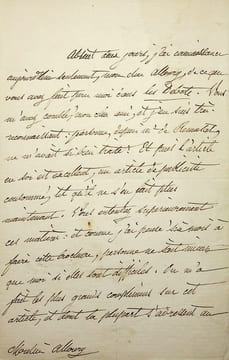 Absent deux jours, j'ai connaissance
aujourd'hui seulement, mon cher Alloury, de ce que
vous avez fait pour moi dans les Débats. Vous
m'avez comblé, mon cher ami, et j'en suis très
reconnaissant : personne, depuis Mr de
ne m'avait si bien traité! Et puis l'article
en soi est excellent, un article de publiciste
consommé, tel qu'on n'en fait plus
maintenant. Vous entendez supérieurement
ces matières : et comme j'ai passé six mois à
faire cette brochure, personne ne sait mieux
que moi si elles sont difficiles. On m'a
fait les plus grands compliments sur cet
article, et dont la plupart s'adressent au
Monsieur Alloury